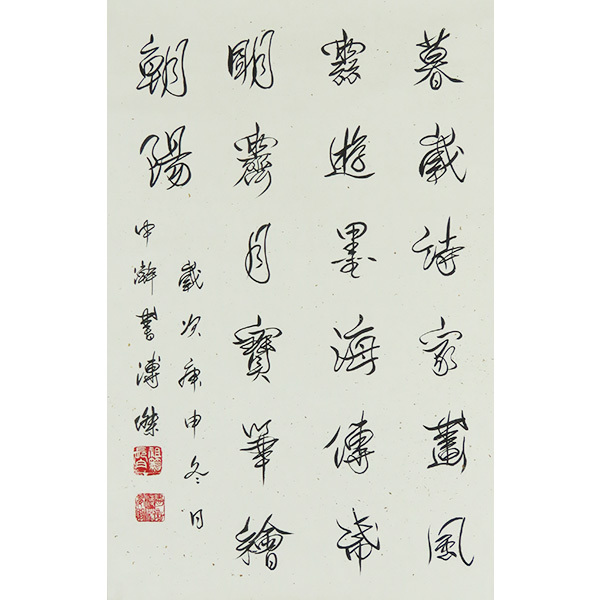 暮載詩家畫風
靈遊墨海傳
明霽月寶筆繪
朝陽
歲次庚申冬月
中澣書溥傑